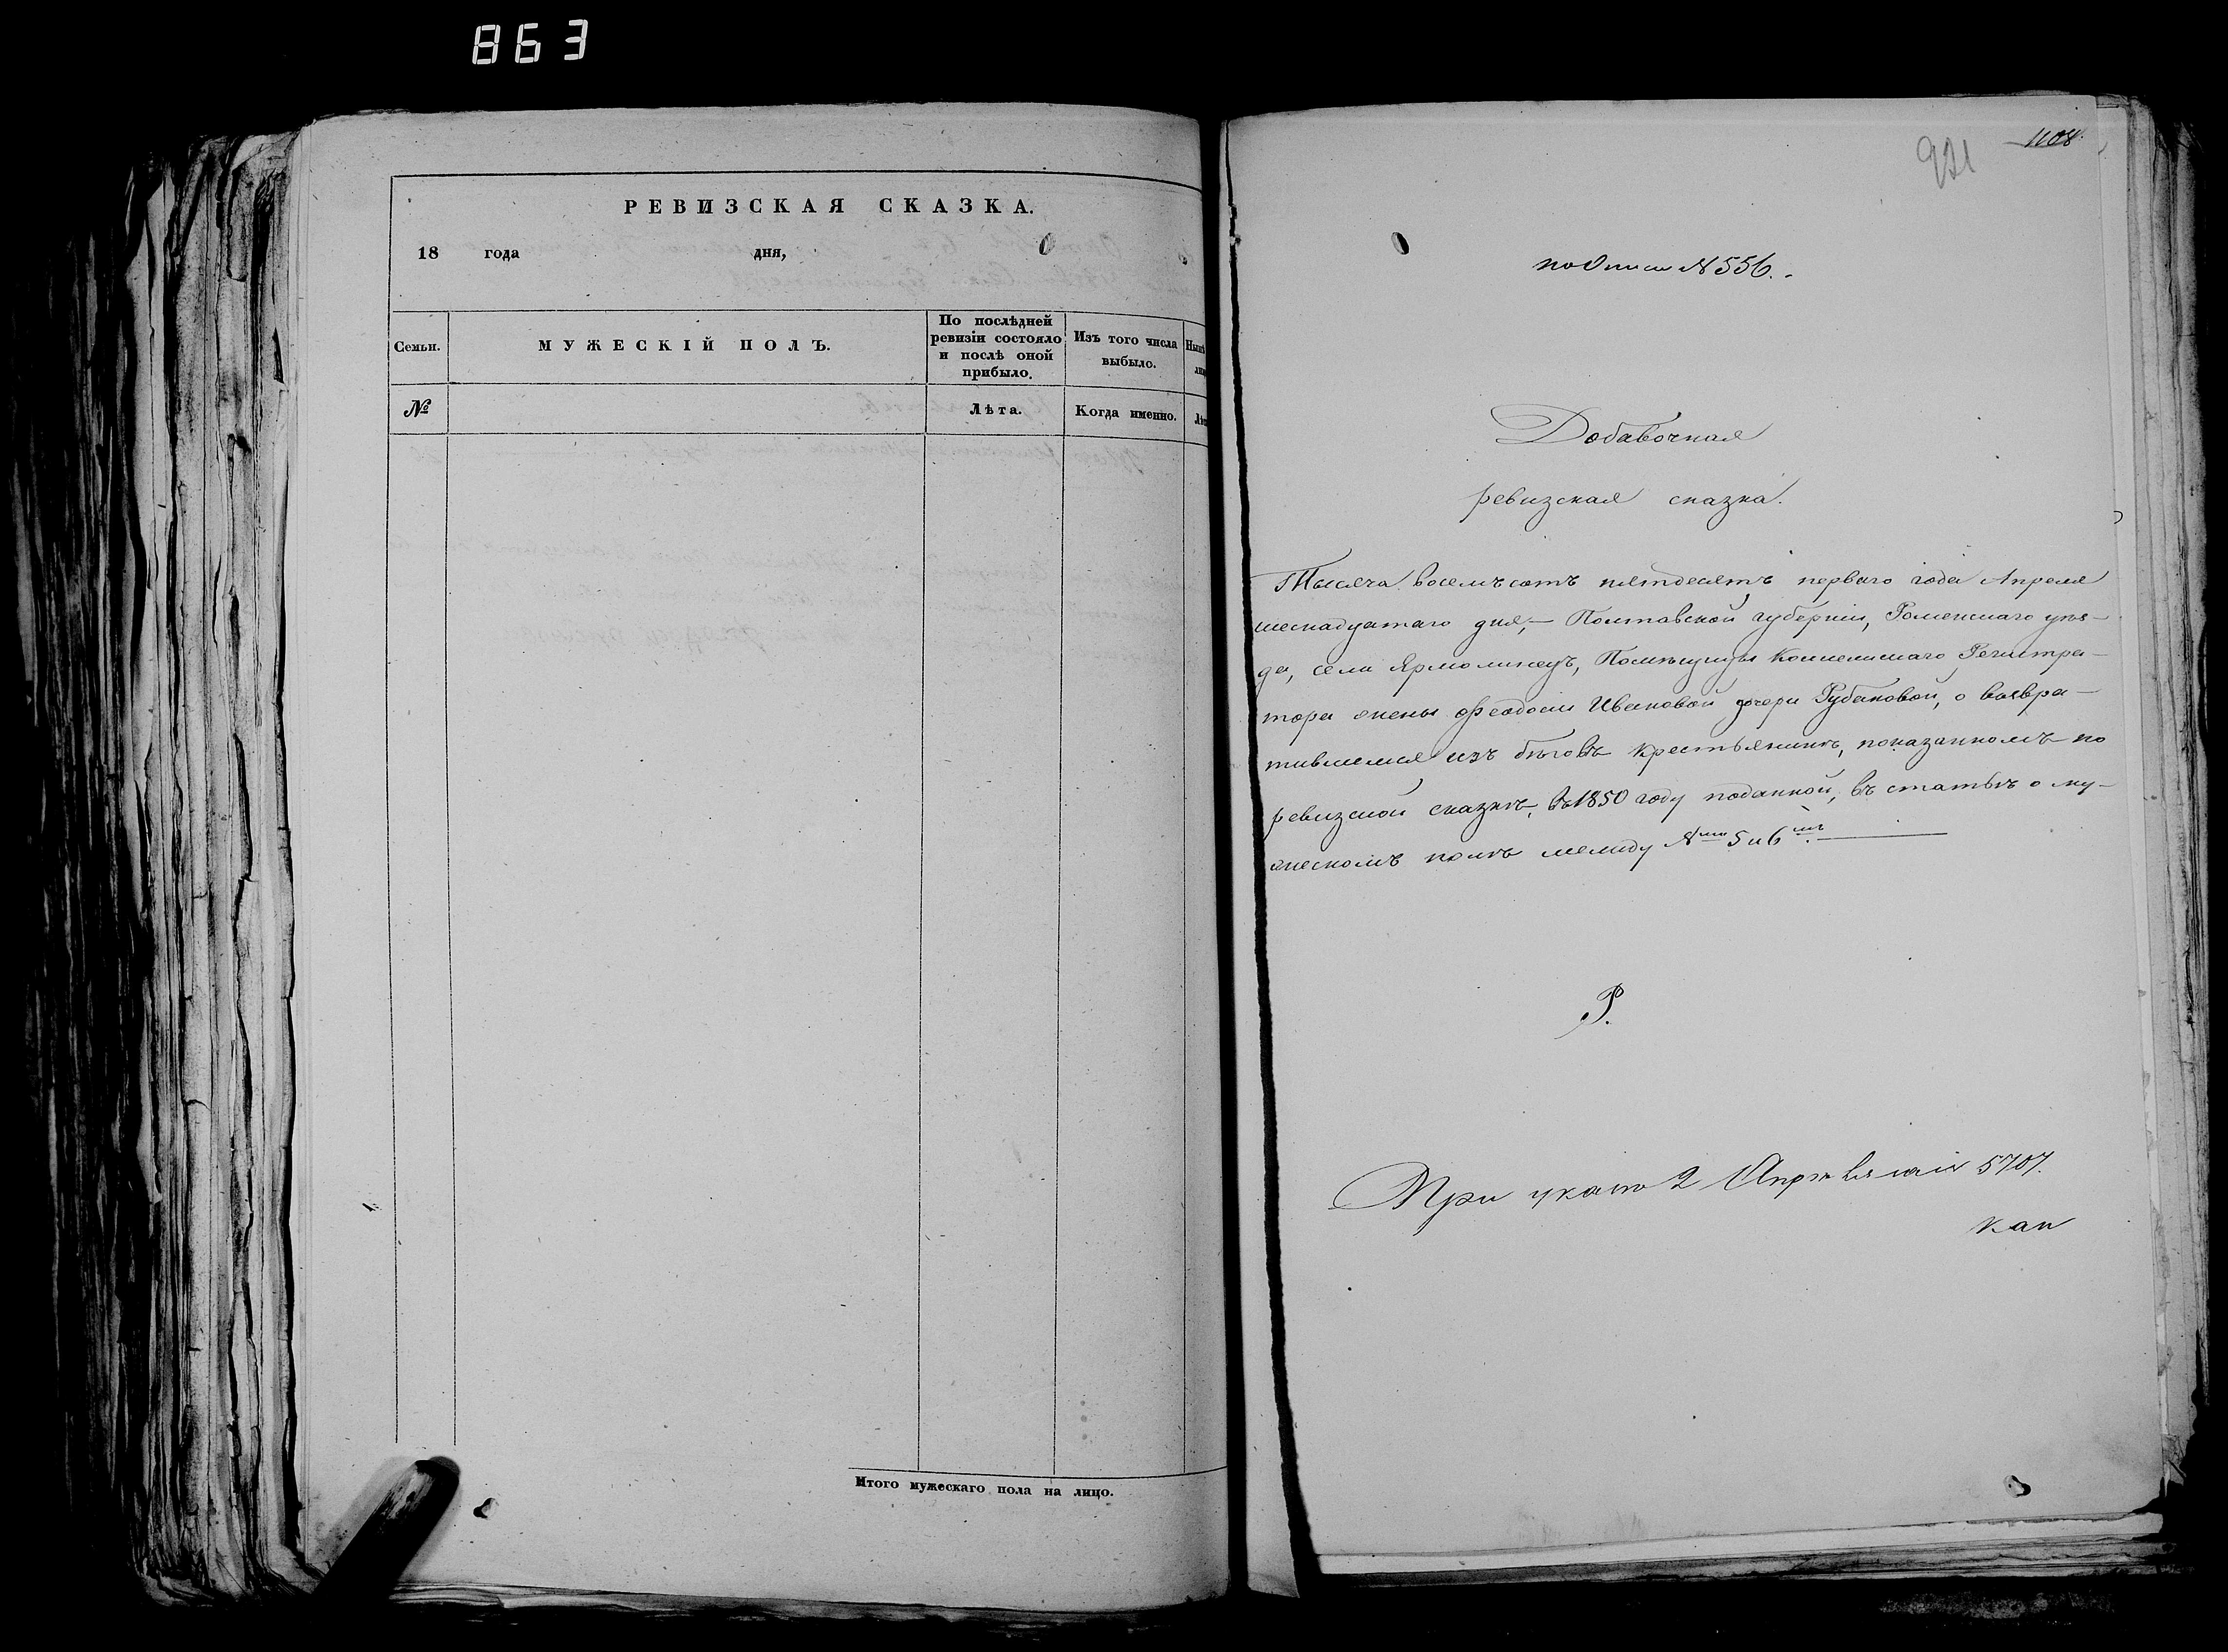 863
РЕВИЗСКАЯ СКАЗКА.
18 года дня,
Семьи.
МУЖЕСКІЙ ПОЛЪ.
По послѣдней
ревизіи состояло
и послѣ оной
прибыло.
Изъ того числа
выбыло.
№
Лѣта.
Когда именно.
Итого мужескаго пола на лицо.
921
1108.
по Описи № 556.
Добавочная
ревизская сказка.
Тысяча восемъсотъ пятдесятъ перваго года Апреля
шеснадцатаго дня,— Полтавской губерніи, Роменскаго уѣз-
да, села Ярмолинец, Помѣщицы Коллежскаго Регистра-
тора жены Феодосіи Ивановой дочери Рубановой, о возвра-
тившемся изъ бѣговъ крестьянинѣ, показанномъ по
ревизской сказкѣ, въ 1850 году поданной, въ статьѣ о му-
жескомъ полѣ между № 5 и 6
Р.
При указѣ 2 5707.